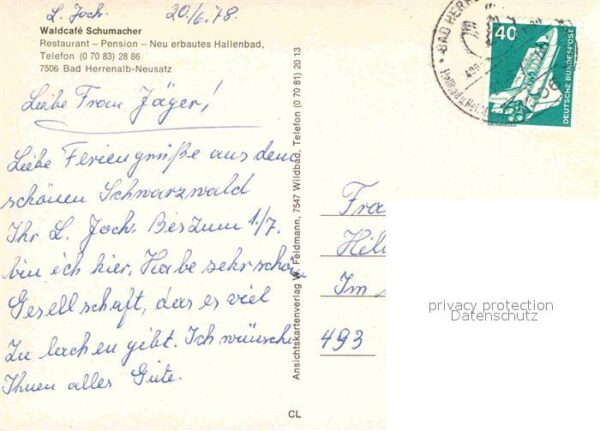 L. Joch. 20/6.78.
Waldcafé Schumacher
Restaurant – Pension – Neu erbautes Hallenbad,
Telefon (0 70 83) 28 86
7506 Bad Herrenalb-Neusatz
Liebe Frau Jäger!
Liebe Feriengrüße aus dem
schönen Schwarzwald
Ihr L. Joch. Bis zum 1/7.
bin ich hier. Habe sehr schön
Gesellschaft, das es viel
zu lachen gibt. Ich wünsche
Ihnen alles Gute.
Ansichtskartenverlag W. Feldmann, 7547 Wildbad, Telefon (0 70 81) 20 13
CL
BAD HERRE
40
DEUTSCHE BUNDESPOST
Fra
Hil
Im
493
privacy protection
Datenschutz